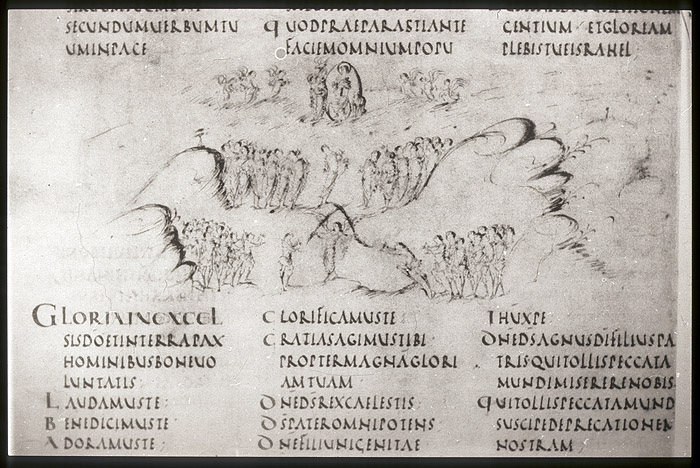 SECUNDUMUERBUMTU
UMINPACE
QUODPRAEPARASTIANTE
FACIEMOMNIUMPOPU
CENTIUM ETGLORIAM
PLEBISTUEISRAHEL
GLORIAINEXCEL
SISDOETINTERRAPAX
HOMINIBUSBONEUO
LUNTATIS
LAUDAMUSTE
BENEDICIMUSTE
ADORAMUSTE
CLORIFICAMUSTE
CRATIASAGIMUSTIBI
PROPTERMAGNAGLORI
AMTUAM
DNEDSREXCAELESTIS
DSPATEROMNIPOTENS
DNEFILIUNIGENITAE
IHUXPE
DNEDSAGNUSDIFILIUSPA
TRISQUITOLLISPECCATA
MUNDIMISERERENOBIS
QUITOLLISPECCATAMUND
SUSCIPEDEPRECATIONEM
NOSTRAM